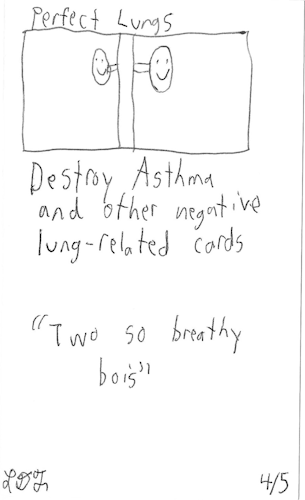 Perfect Lungs
Destroy Asthma
and other negative
lung-related cards
"Two so breathy
bois"
4/5